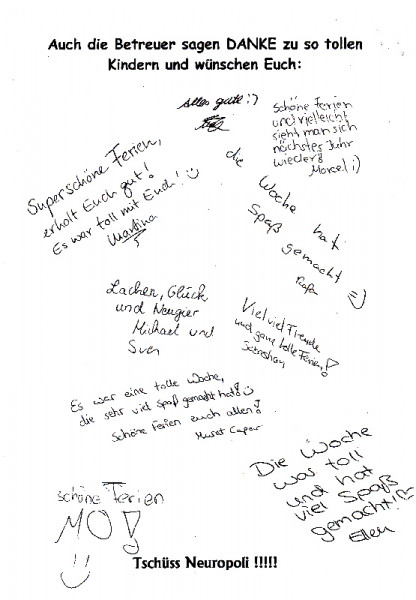 Auch die Betreuer sagen DANKE zu so tollen
Kindern und wünschen Euch:
alles gute! :)
Schöne Ferien
und vielleicht
sieht man sich
nächstes Jahr
wieder!
Marcel ;)
Superschöne Ferien,
erholt Euch gut!
Es war toll mit Euch!
Martina
die
Woche hat
Spaß gemacht
=)
Lachen, Glück
und Neugier
Michael und
Sven
Viel viel Freude
und ganz tolle Ferien!
Es war eine tolle Woche,
die sehr viel Spaß gemacht hat!
Schöne Ferien euch allen!
Die Woche
war toll
und hat
viel Spaß
gemacht!!
Ellen
schöne Ferien
MO!
Tschüss Neuropoli !!!!!